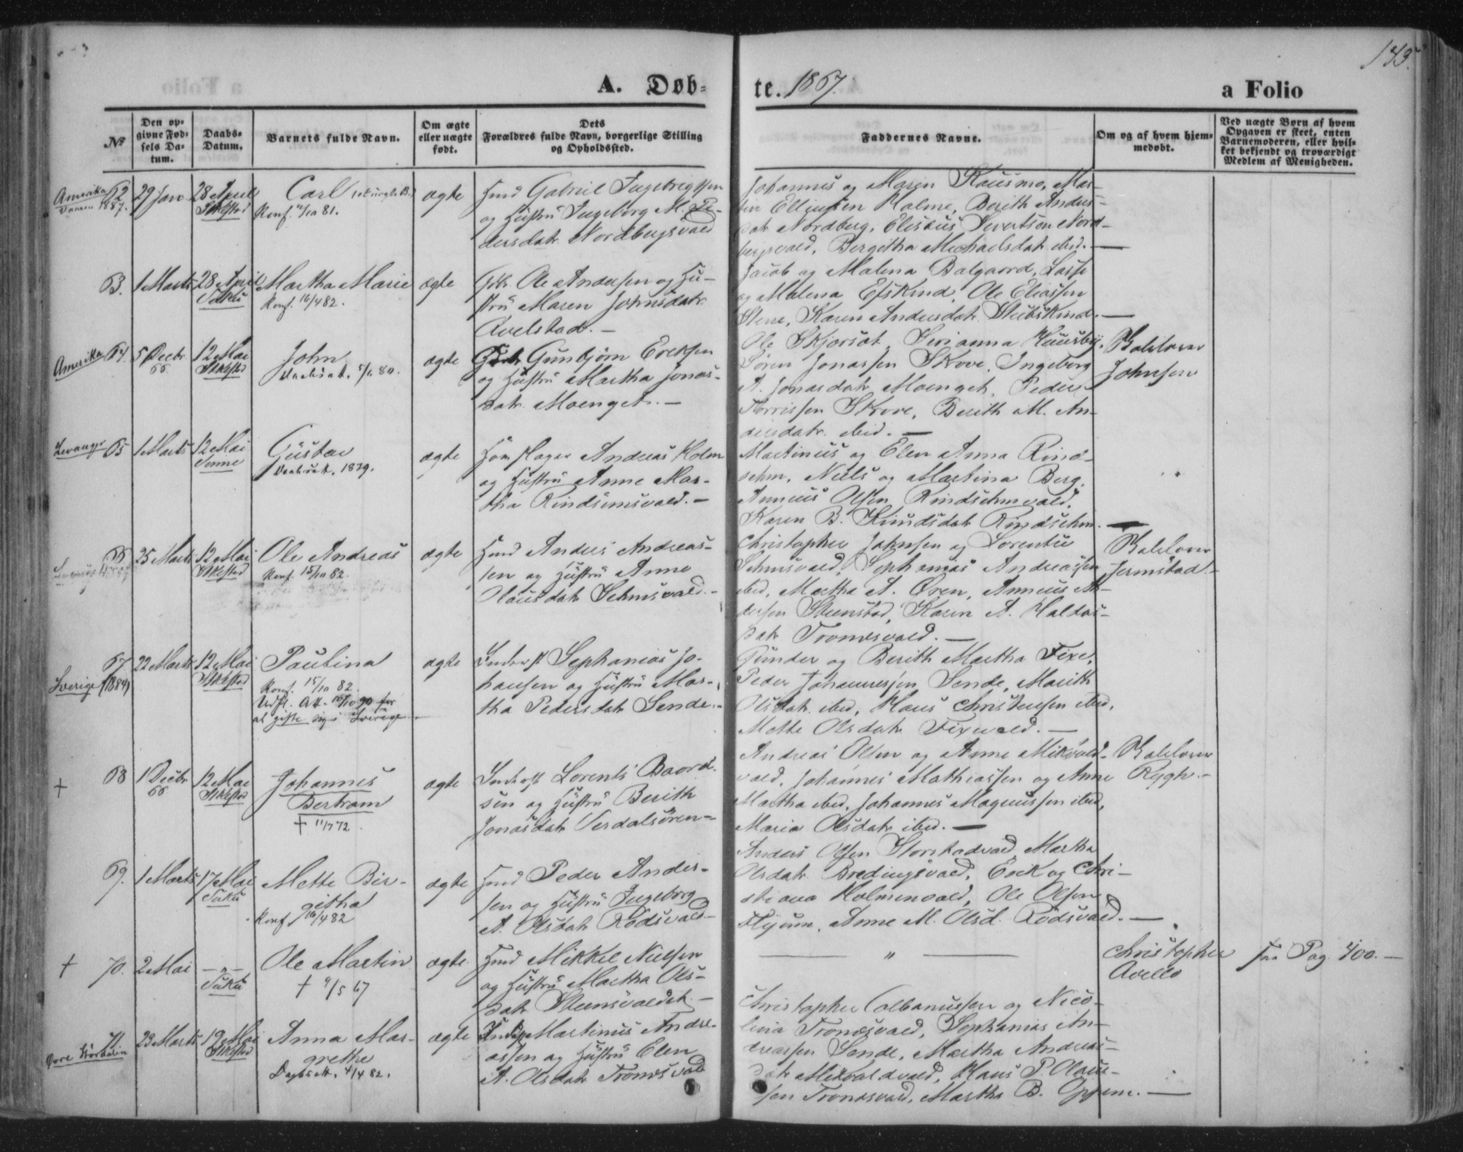 A. Døb=
te. 1867.
a Folio
185.
No
Den op=
givne Fød=
sels Da=
tum.
Daabs=
Datum.
Barnets fulde Navn.
Om ægte
eller uægte
født.
Dets
Forældres fulde Navn, borgerlige Stilling
og Opholdssted.
Faddernes Navne.
Om og af hvem hjem=
medøbt.
Ved uægte Børn af hvem
Opgaven er skeet, enten
Barnemoderen, eller hvil=
ket bekjendt og troværdigt
Medlem af Menigheden.
Amerika
1887.
62
29 Jan
28 April
Carl
Konf. 81.
ægte
Gabriel Ingebrigtsen
og Hustru Ingeborg M. Pe-
dersdatr Nordbergsvald
Johannes og Maren Kausmo, Mar-
tin Ellingsen Holme, Berith Anders-
datr Nordberg, Elisæus Sivertsen Nord
bergsvald, Bergitha Michaelsdatr ibid.
63.
1 Marts
28 April
Martha Marie
Konf. 16/4 82.
ægte
Ole Andersen og Hu-
stru Maren Johnsdatr
Avelstad. —
Jacob og Malena Balgaard, Lasse
og Malena Efskind, Ole Eliassen
Stene, Karen Andersdatr
Amerika
64.
5 Decbr
66
12 Mai
Stiklestad
John
80.
ægte
Gunbjørn Ericksen
og Hustru Martha Jonas-
datr Moenget. —
Ole Skjørsat,
Søren Jonassen Skove, Ingeborg
A. Jonasdatr Moenget, Peder
Torrissen Skove, Berith M. An-
dersdatr ibid. —
Johnsen
65
1 Marts
12 Mai
Gustav
1879.
ægte
Andreas Holm
og Hustru Anne Mar-
tha Rindsemsvald. —
Martinus og Elen Anna Rind-
sehm, Niels og Martina Berg,
Annæus Olsen Rindsehmvald,
Karen B. Knudsdatr Rindsehm.
66
25 Marts
12 Mai
Stiklestad
Ole Andreas
Konf. 15/10 82.
ægte
Anders Andreas-
sen og Hustru Anne
Olausdatr Sehmsvald. —
Christopher Johnsen og Lorentse
Sehmsvald, Sephanias Andreassen
ibid, Martha A. Ören, Annæus An-
dersen Stenstad, Karen A. Haldos-
datr Tronæsvald. —
67
Sverige (1889)
22 Marts
12 Mai
Stiklestad
Paulina
Konf. 15/10 82.
at gifte sig i Sverige
ægte
Sephanias Jo-
hansen og Hustru Mar-
tha Pedersdatr Sende. —
Gunder og Berith Martha Fixe,
Peder Johannessen Sende, Marith
Olsdatr ibid, Hans Christensen ibid,
Mette Olsdatr Fixevald. —
†
68
1 Decbr
66
12 Mai
Stiklestad
Johannes
Bertram
† 11/7 72.
ægte
Lorents Baard-
sen og Hustru Berith
Jonasdatr Verdalsøren —
Andreas Olsen og Anne
vald, Johannes Mathiassen og Anne
Martha ibid, Johannes Magnussen ibid,
Maria Olsdatr ibid. —
Rygh. —
69.
1 Marts
17 Mai
Mette Ber-
getha
Konf. 16/4 82
ægte
Peder Ander-
sen og Hustru Ingeborg
A. Olsdatr Rødsvald —
Anders Olsen Storstadvald, Martha
Olsdatr Bredingsvald, Erik og Chri-
stiana Holmenvald, Ole Olsen
Anne M. Olsd. Rødsvald. —
†
70.
2 Mai
— " —
Ole Martin
† 9/5 67
ægte
Mikkel Nielsen
og Hustru Martha Ols-
datr
"
Christopher
Avello
Pag 400. —
71.
23 Marts
19 Mai
Stiklestad
Anna Mar-
grethe
4/4 82.
ægte
Martinus Andre-
assen og Hustru Elen
A. Olsdatr Tronæsvald
Christopher Albanussen og Nico-
lina Tronæsvald, Sephanias An-
dreassen Sende, Martha Andreas-
datr Mikvoldvald, Hans P. Olaus-
sen Tronæsvald, Martha B. Oppem. —